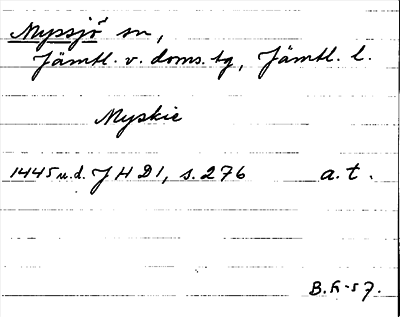 Myssjö sn,
Jämtl. v. doms. tg, Jämtl. l.
Myskie
1445 u.d. J H D 1, s. 276 a. t.
B. h-57.